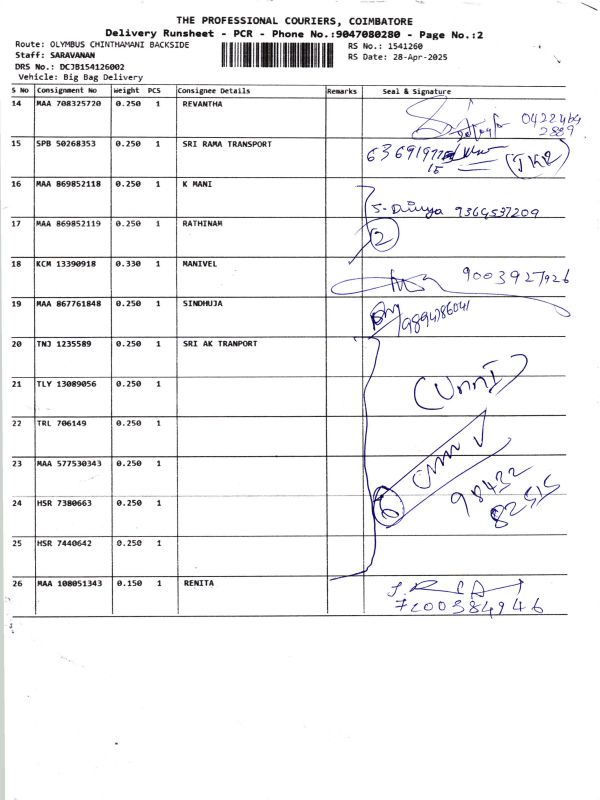 THE PROFESSIONAL COURIERS, COIMBATORE
Delivery Runsheet - PCR - Phone No.:9047080280 - Page No.:2
Route: OLYMBUS CHINTHAMANI BACKSIDE RS No.: 1541260
Staff: SARAVANAN RS Date: 28-Apr-2025
DRS No.: DCJB154126002
Vehicle: Big Bag Delivery
S No Consignment No Weight PCS Consignee Details Remarks Seal & Signature
14 MAA 708325720 0.250 1 REVANTHA
0422464
2889
15 SPB 50268353 0.250 1 SRI RAMA TRANSPORT
(TKR)
16 MAA 869852118 0.250 1 K MANI
S. Divya 9364537209
17 MAA 869852119 0.250 1 RATHINAM
2
18 KCM 13390918 0.330 1 MANIVEL
9003927926
19 MAA 867761848 0.250 1 SINDHUJA
9894786041
20 TNJ 1235589 0.250 1 SRI AK TRANPORT
21 TLY 13089056 0.250 1
(Unni)
22 TRL 706149 0.250 1
23 MAA 577530343 0.250 1
98432
82515
24 HSR 7380663 0.250 1
6
25 HSR 7440642 0.250 1
26 MAA 108051343 0.150 1 RENITA
7200384946